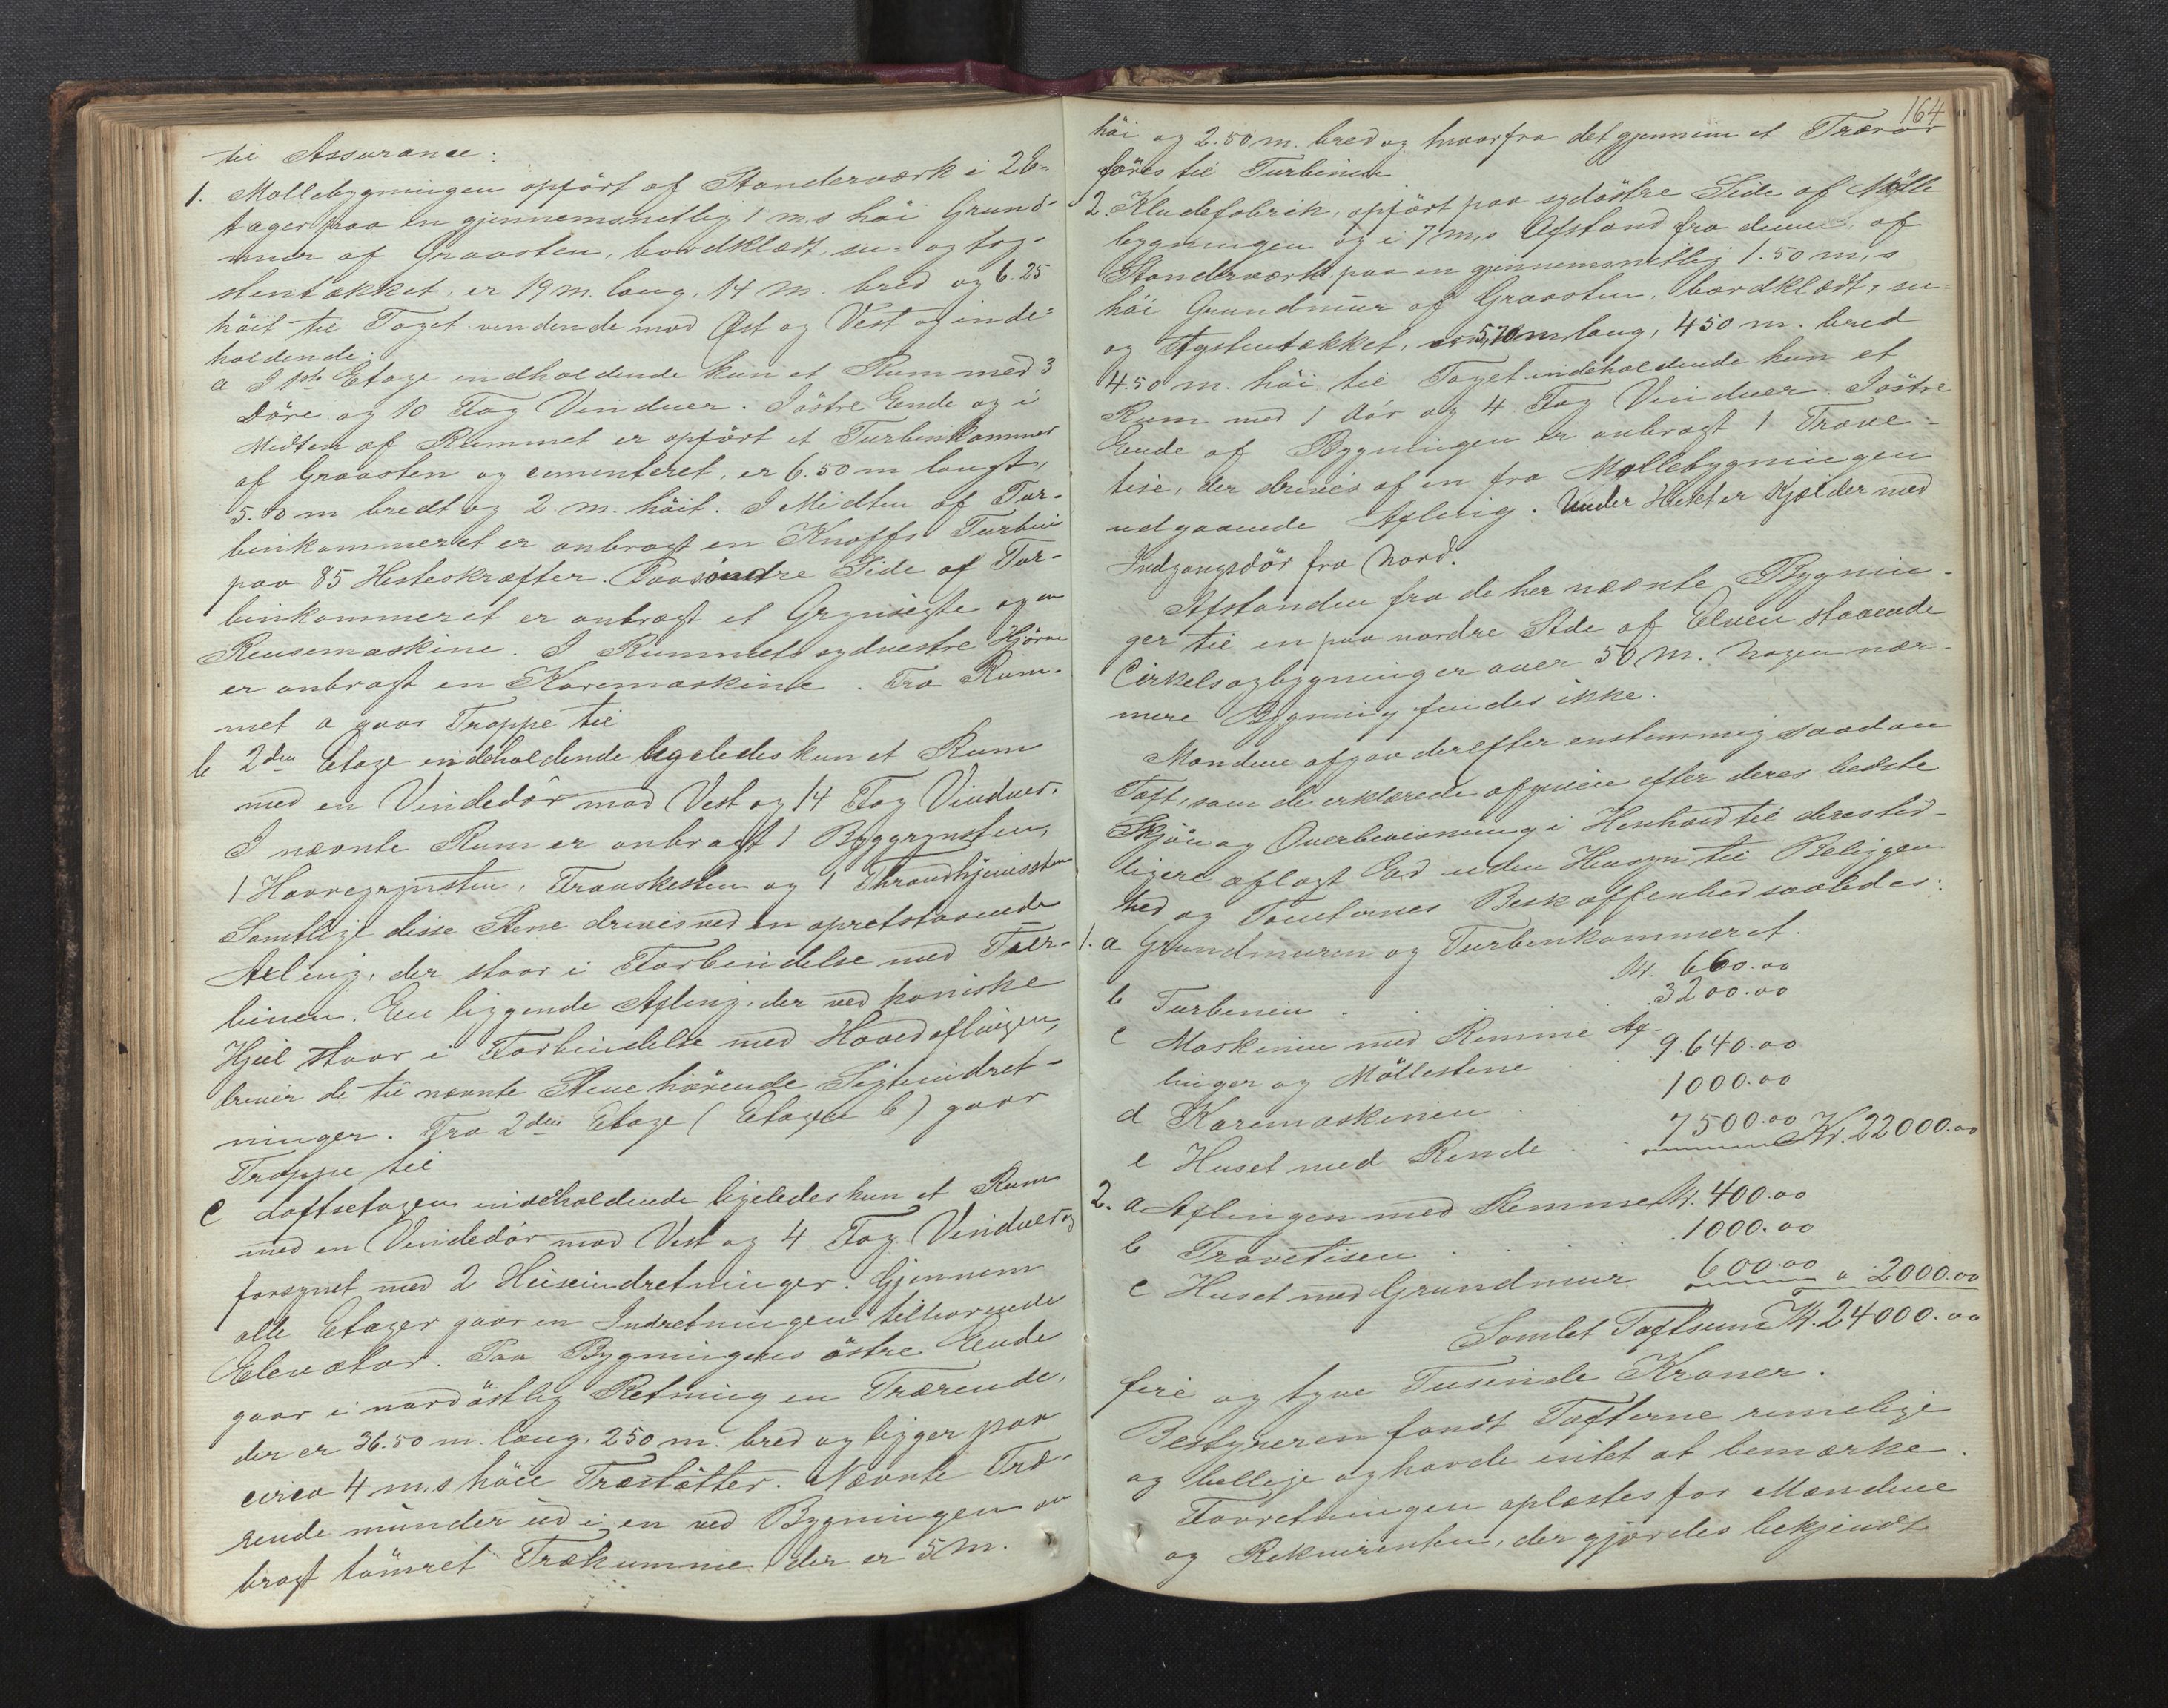 til Assurance:
1. Møllebygningen opført af Standerværk i 2 E-
tager paa en gjennemsnitlig 1 m.s höi Grund-
mur af Graasten, bordklædt, su- og tag-
stentækket, er 19 m. lang, 14 m. bred og 6.25
höit til Taget vendende mod Øst og Vest og inde-
holdende:
a I 1ste Etage indholdende kun et Rum med 3
Döre og 10 Fag Vinduer. I østre Ende og i
Midten af Rummet er opfört et Turbinkammer
af Graasten og cementeret, er 6.50 m langt,
5.50 m bredt og 2 m. höit. I Midten af Tur-
binkammeret er anbragt en Knoffs Turbin
paa 85 Hestekræfter. Paa söndre Side af Tur-
binkammeret er anbragt et Grynsigte og en
Rensemaskine. I Rummets sydvestre Hjörne
er anbragt en Karemaskine. Fra Rum-
met a gaar Trappe til
b 2den Etage indeholdende ligeledes kun et Rum
med en Vindedör mod Vest og 14 Fag Vinduer.
I nævnte Rum er anbragt 1 Byggrynsten,
1 Havregrynsten, Franskesten og 1 Thrandhjemssten
Samtlige disse Stene drives ved en opretstaaende
Axling, der staar i Forbindelse med Tur-
binen. En liggende Axling, der ved koniske
Hjul staar i Forbindelse med Hovedaxlingen,
driver de til nævnte Stene hörende Sigteindret-
ninger. Fra 2den Etage (Etagen b) gaar
Trappe til
c Loftsetagen indeholdende ligeledes kun et Rum
med en Vindedör mod Vest og 4 Fag Vinduer og
forsynet med 2 Heiseindretninger. Gjennem
alle Etager gaar en Indretningen tilhörende
Elevator. Paa Bygningens östre Ende
gaar i nordöstlig Retning en Trærende,
der er 36.50 m. lang, 250 m. bred og ligger paa
circa 4 m.s höie Træstötter. Nævnte Træ-
rende munder ud i en ved Bygningen an
bragt tömret Trækumme der er 5 m.
164
höi og 2.50 m. bred og hvorfra det gjennem et Trærör
föres til Turbinen
2. Kludefabrik, opfört paa sydöstre Side af Mölle
bygningen og i 7 m.s Afstand fra denne, af
Standerværk paa en gjennemsnitlig 1.50 m.s
höi Grundmur af Graasten, bordklædt, su-
og tagstentækket, er 5,70 m lang, 450 m. bred
4.50 m. höi til Taget indeholdende kun et
Rum med 1 Dör og 4 Fag Vinduer. I östre
Ende af Bygningen er anbragt 1 Trave-
tise, der drives af en fra Møllebygningen
udgaaende Axling. Under Huset er Kjælder med
Indgangsdör fra Nord.
Afstanden fra de her nævnte Bygnin-
ger til en paa nordre Side af Elven staaende
Cirkelsagbygning er over 50 m. Nogen nær-
mere Bygning findes ikke.
Mændene afgav derefter enstemmig saadan
Taxt, som de erklærede afgiven efter deres bedste
Skjön og Overbevisning i Henhold til deres tid-
ligere aflagt Ed uden Hensyn til Beliggen
hed og Tomternes Beskaffenhed saaledes:
1. a Grundmuren og Turbinkammeret.
Kr. 660.00
b Turbinen . . . 3200.00
c Maskinen med Remme Ax-
linger og Möllestene . 9.640.00
d Karemaskinen . . 1000.00
e Huset med Rende . . 7500.00 Kr. 22000.00
2. a Axlingen med Remme Kr. 400.00
b Travetisen . . . 1000.00
c Huset med Grundmur 600.00 " 2000.00
Samlet Taxtsum Kr. 24000.00
fire og tyve Tusinde Kroner.
Bestyreren fandt Taxterne rimelige
og billige og havde intet at bemærke.
Forretningen oplæstes for Mændene
og Rekvirenten, der gjordes bekjendt